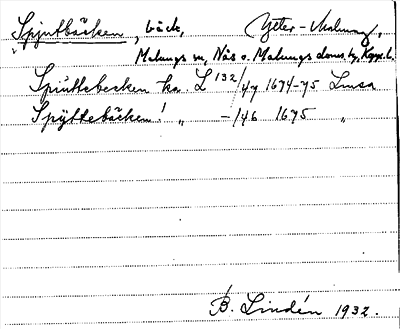 Spjutbäcken, bäck, Ytter-Malung,
Malungs sn, Nås o. Malungs doms. hg, Kopp. l.
Spiuttebecken ka. L 132/47 1674-75 Lmsa
Spÿttebäcken! " -/46 1675 "
B. Lindén 1932.